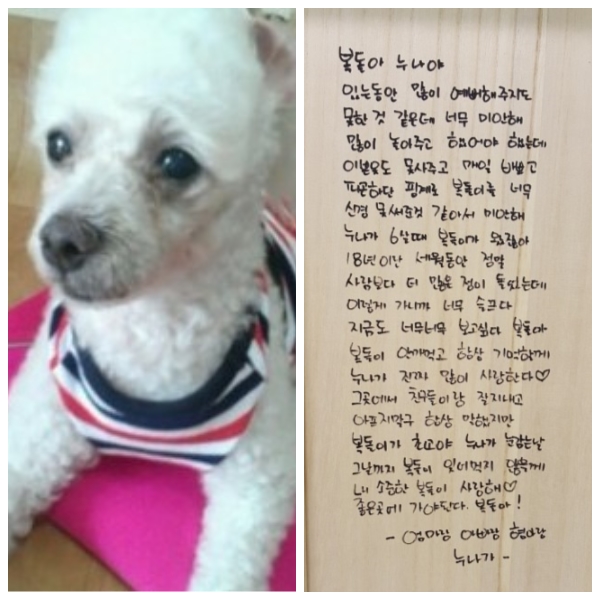 복돌아 누나야
있는동안 많이 예뻐해주지도
못한 것 같은데 너무 미안해
많이 놀아주고 했어야 했는데
이쁜옷도 못사주고 매일 바쁘고
피곤하단 핑계로 복돌이를 너무
신경 못써준것 같아서 미안해
누나가 6살때 복돌이가 왔잖아
18년이란 세월동안 정말
사람보다 더 많은 정이 들었는데
이렇게 가니까 너무 슬프다
지금도 너무너무 보고싶다 복돌아
복돌이 안까먹고 항상 기억할게
누나가 진짜 많이 사랑한다♡
그곳에서 친구들이랑 잘지내고
아프지말구 항상 말했지만
복돌이가 최고야 누나가 눈감는날
그날까지 복돌이 잊어먹지 않을게
내 소중한 복돌이 사랑해♡
좋은곳에 가야된다. 복돌아!
- 엄마랑 아빠랑 형아랑
누나가 -